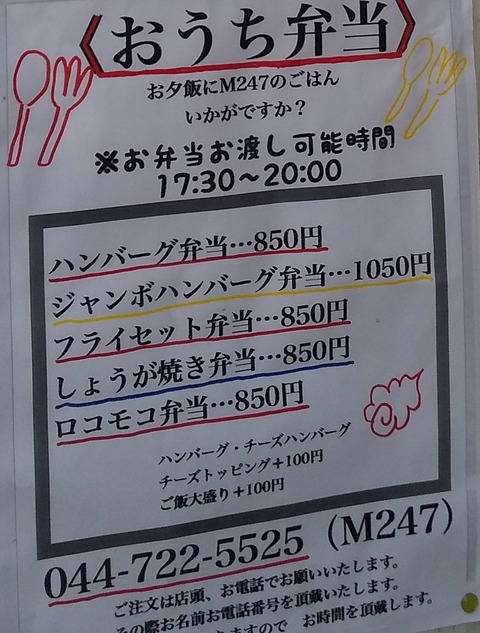 おうち弁当
お夕飯にM247のごはん
いかがですか？
※お弁当お渡し可能時間
17:30～20:00
ハンバーグ弁当…850円
ジャンボハンバーグ弁当…1050円
フライセット弁当…850円
しょうが焼き弁当…850円
ロコモコ弁当…850円
ハンバーグ・チーズハンバーグ
チーズトッピング＋100円
ご飯大盛り＋100円
044-722-5525（M247）
ご注文は店頭、お電話でお願いいたします。
その際お名前お電話番号を頂戴いたします。
ますので　お時間を頂戴します。